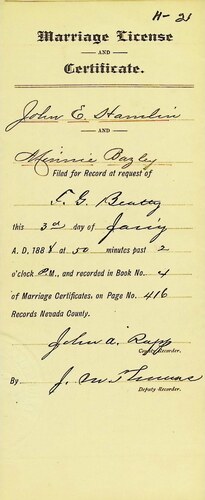 H-21
Marriage License
AND
Certificate.
John E. Hamlin
AND
Minnie Bazley
Filed for Record at request of
F. G. Beatty
this 3rd day of Jan'y
A. D. 1888 at 50 minutes past 2
o'clock P.M., and recorded in Book No. 4
of Marriage Certificates, on Page No. 416
Records Nevada County.
John A. Rapp
County Recorder.
By J. M. Thomas
Deputy Recorder.